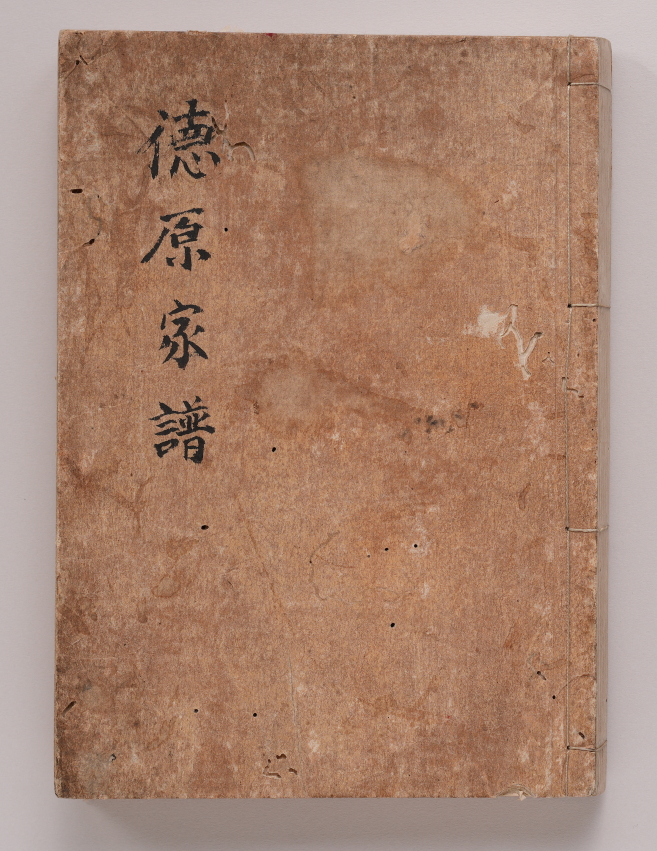 德原家譜